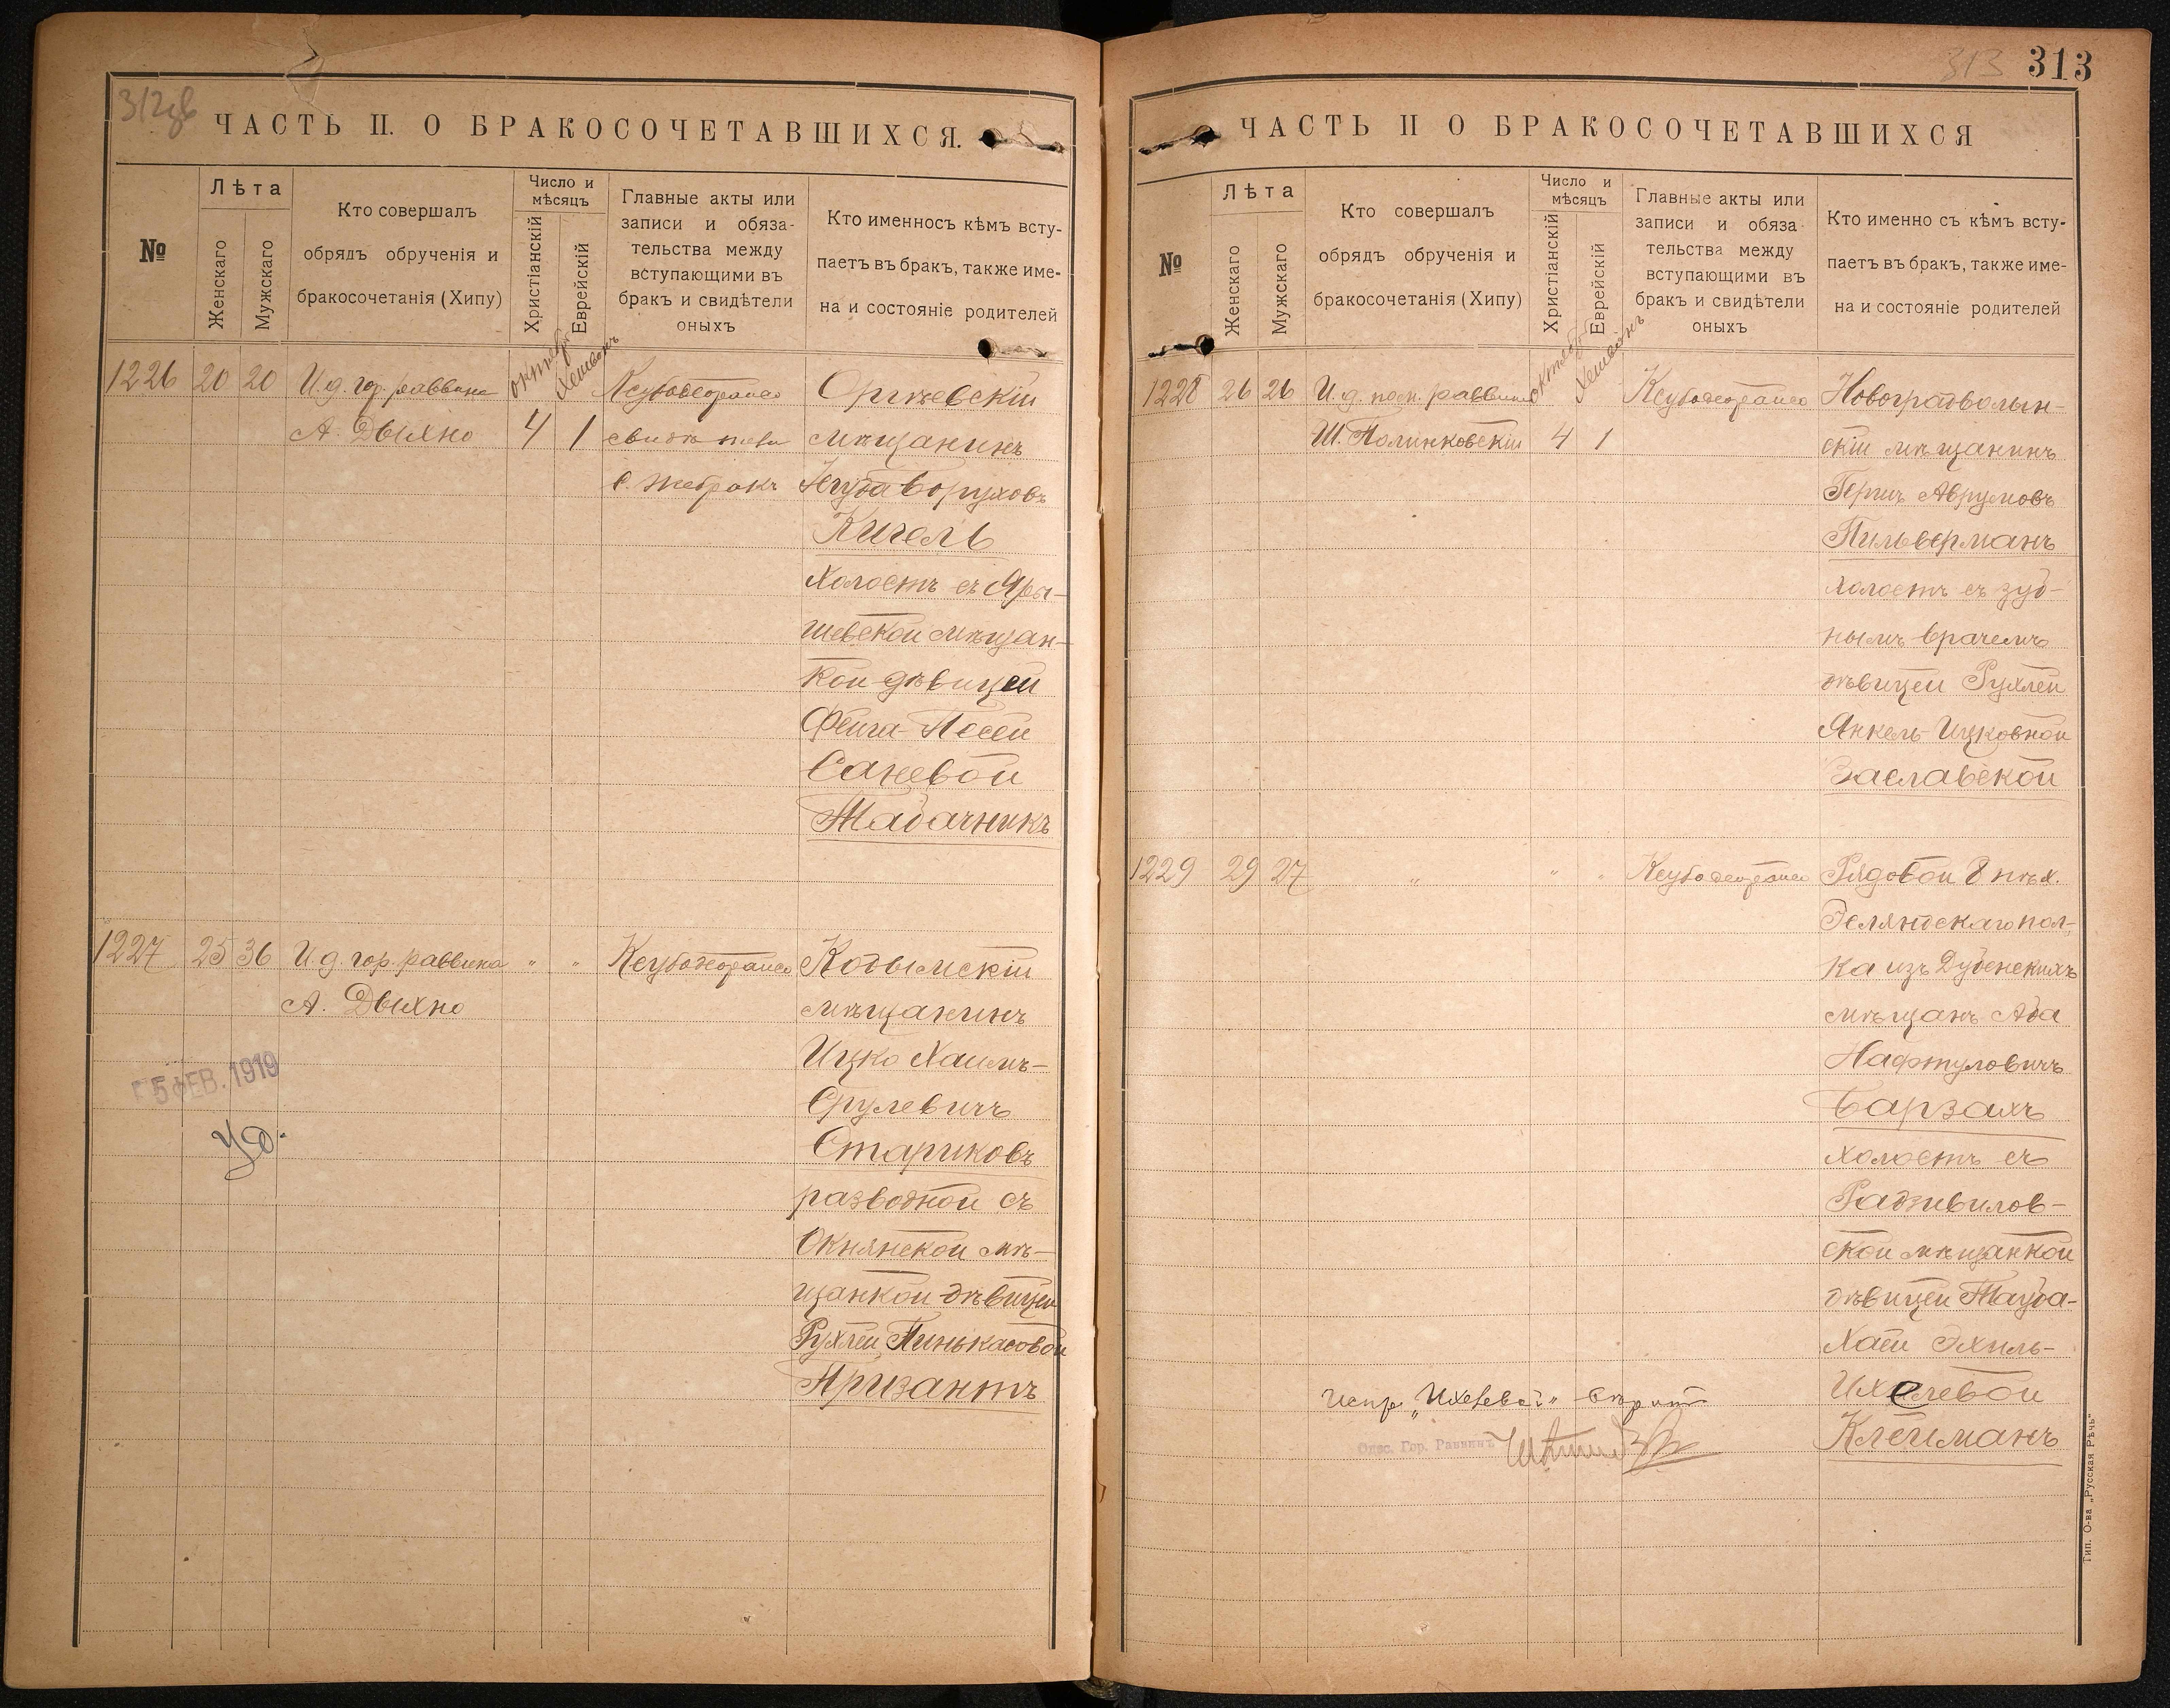 312об
ЧАСТЬ II. О БРАКОСОЧЕТАВШИХСЯ.
№
Лѣта
Женскаго
Мужскаго
Кто совершалъ
обрядъ обрученія и
бракосочетанія (Хипу)
Число и
мѣсяцъ
Христіанскій
Еврейскій
Главные акты или
записи и обяза-
тельства между
вступающими въ
бракъ и свидѣтели
оныхъ
Кто именносъ кѣмъ всту-
паетъ въ бракъ, также име-
на и состояніе родителей
1226 20 20 И.д. гор. раввина
А. Дыхно
октябр
Хешвонъ
4 1
С. Жебракъ
Оргѣевскій
мѣщанинъ
Боруховъ
Кигель
Холостъ съ Яры-
шевской мѣщан-
кой дѣвицей
Фейга-Песей
Саневой
Табачникъ
1227 25 36 И.д. гор. раввина " "
А. Дыхно
Кодымскій
мѣщанинъ
Ицко Хаимъ-
Срулевичъ
Стариковъ
разводной съ
Окнянской мѣ-
щанкой дѣвицей
Рухлей Пинькасовой
Призантъ
5 ФЕВ. 1919
313
313
ЧАСТЬ II О БРАКОСОЧЕТАВШИХСЯ
№
Лѣта
Женскаго
Мужскаго
Кто совершалъ
обрядъ обрученія и
бракосочетанія (Хипу)
Число и
мѣсяцъ
Христіанскій
Еврейскій
Главные акты или
записи и обяза-
тельства между
вступающими въ
бракъ и свидѣтели
оныхъ
Кто именно съ кѣмъ всту-
паетъ въ бракъ, также име-
на и состояніе родителей
1228 26 26 И.д. пом. раввина
Ш. Полинковскій
октябрь
Хешвонъ
4 1
Новоградволын-
скій мѣщанинъ
Герш Аврумовъ
Пильверманъ
холостъ съ зуб-
нымъ врачемъ
дѣвицей Рухлей
Янкель-Ицковной
Заславской
1229 29 27 " " "
Рядовой 8 пѣх.
Эстляндскаго пол-
ка изъ Дубенскихъ
мѣщанъ Аба
Нафтуловичъ
Барзахъ
холостъ съ
Радзивилов-
ской мѣщанкой
дѣвицей Тауба-
Хаей Эхиль-
Ихелевой
Клейманъ
Испр. „Ихелевой" вѣрить
Одес. Гор. Раввинъ
Тип. О-ва „Русская Рѣчь"